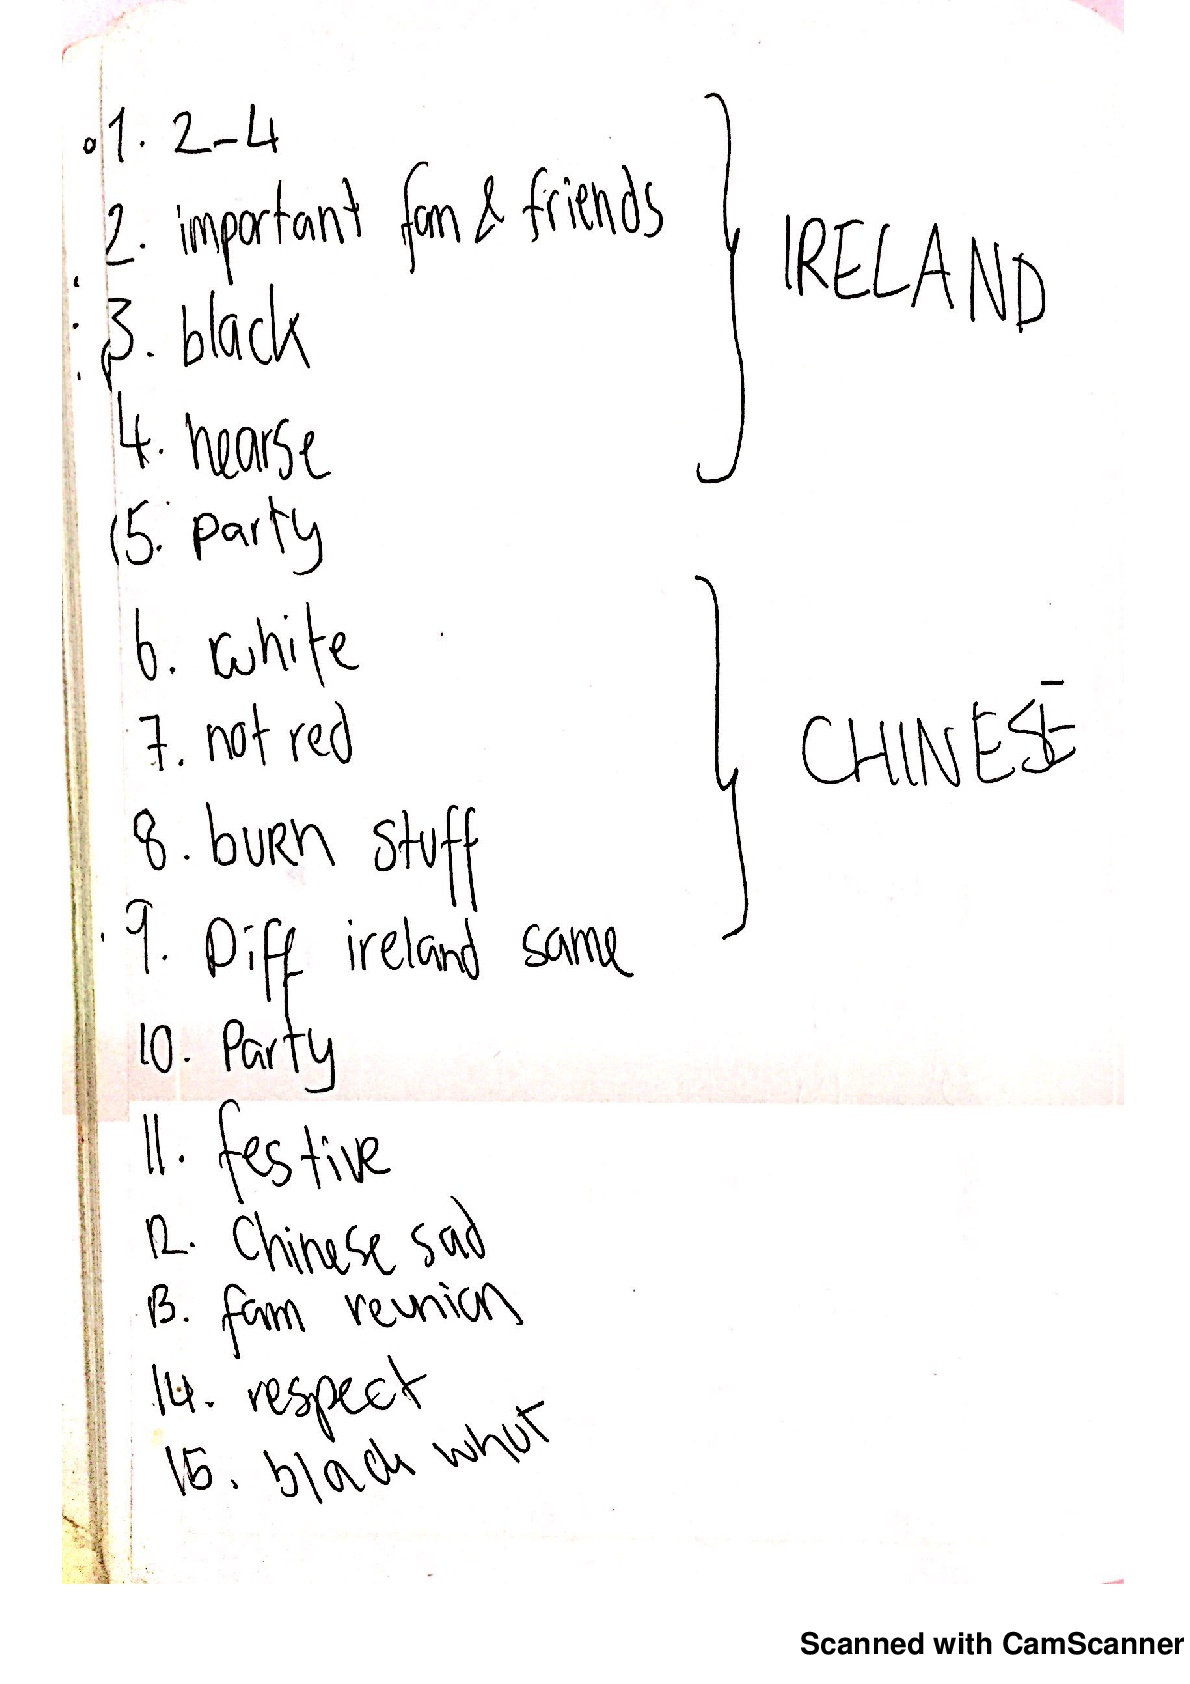 1. 2-4
2. important fam & friends
3. black
4. hearse
IRELAND
5. party
6. white
7. not red
8. burn stuff
CHINESE
9. Diff ireland same
10. Party
11. festive
12. Chinese sad
13. fam reunion
14. respect
15. black whut
Scanned with CamScanner